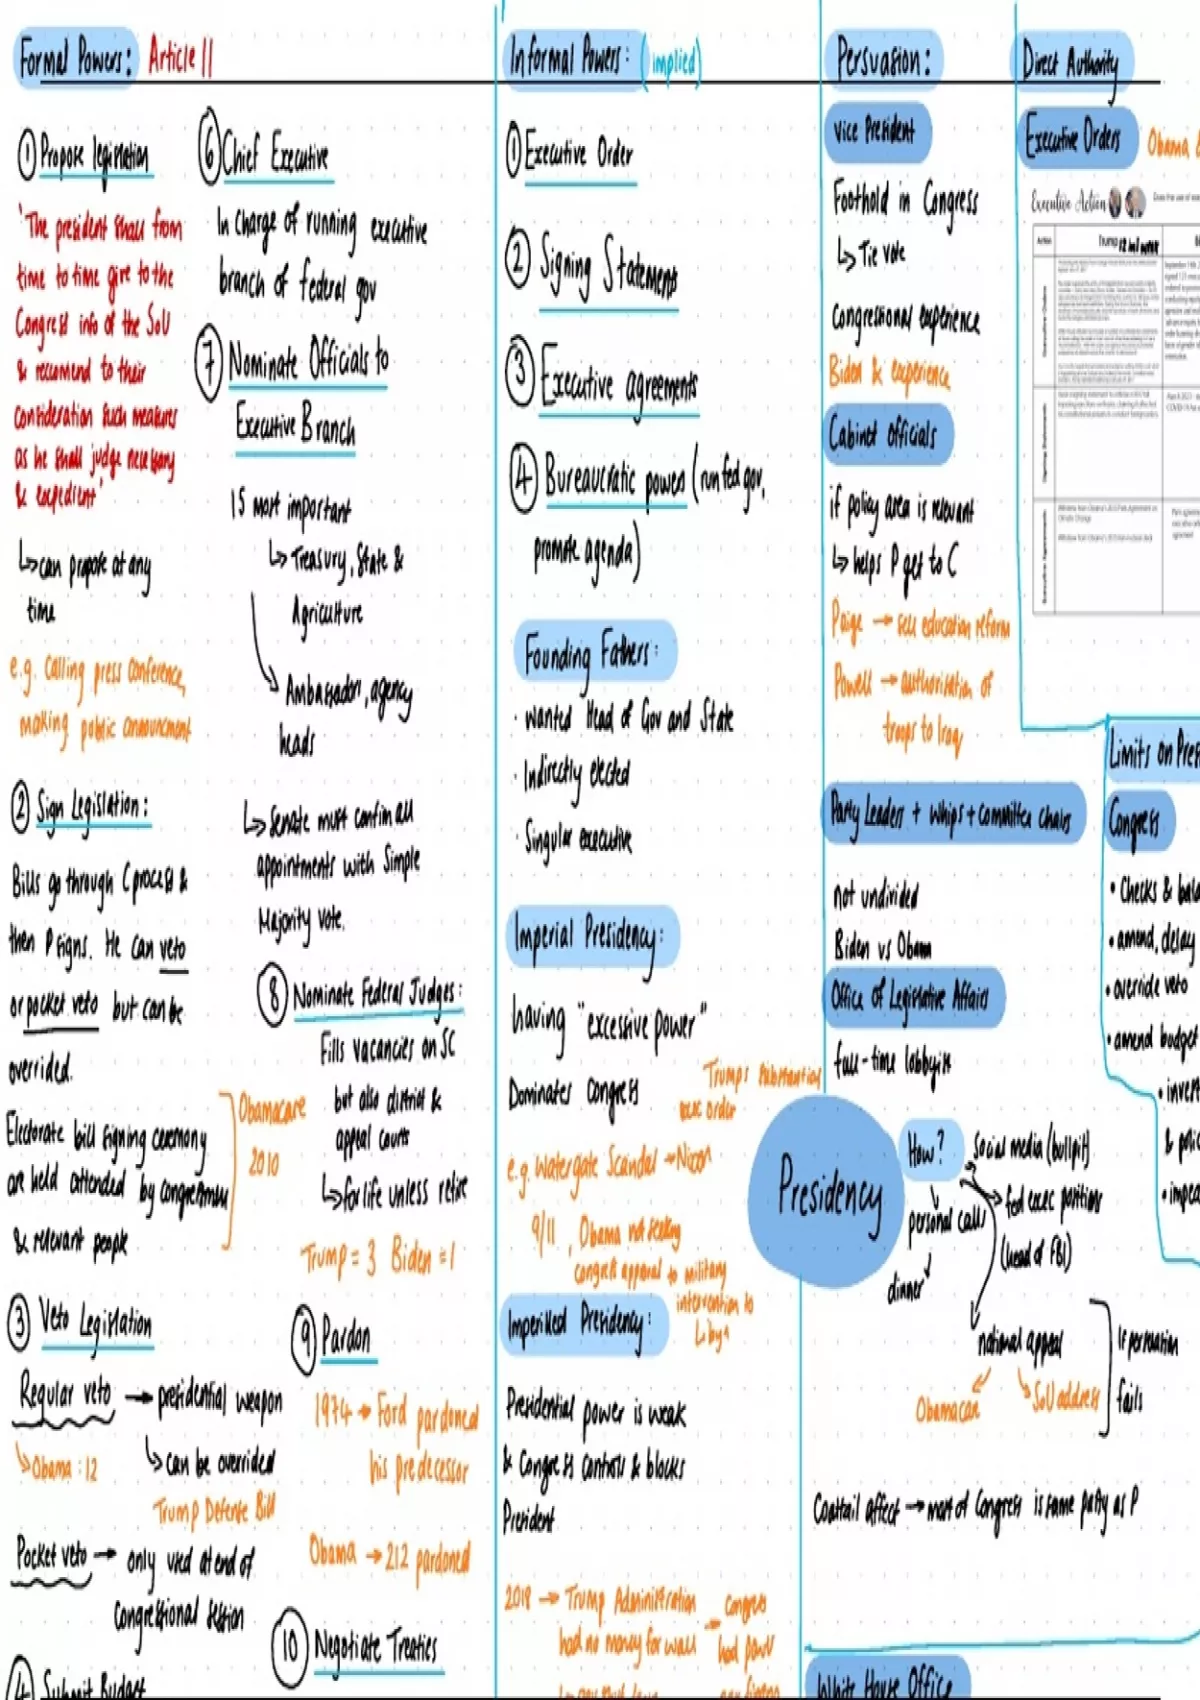 Formal Powers: Article II
① Propose legislation
'The president shall from
time to time give to the
Congress info of the SoU
& recommend to their
consideration such measures
as he shall judge necessary
& expedient'
↳ can propose at any
time
e.g. calling press conference,
making public announcement
② Sign Legislation:
Bills go through C process &
then P signs. He can veto
or pocket veto but can be
overrided.
Electorate bill signing ceremony
are held attended by congressmen
& relevant people
Obamacare
2010
③ Veto Legislation
Regular veto → presidential weapon
↳ Obama: 12
↳ can be overrided
Trump Defense Bill
Pocket veto → only used at end of
Congressional session
④ Submit Budget
⑥ Chief Executive
In charge of running executive
branch of federal gov
⑦ Nominate Officials to
Executive Branch
15 most important
↳ Treasury, State &
Agriculture
↳ Ambassadors, agency
heads
↳ Senate must confirm all
appointments with simple
Majority vote.
⑧ Nominate Federal Judges:
Fills vacancies on SC
but also district &
appeal courts
↳ for life unless retire
Trump = 3 Biden = 1
⑨ Pardon
1974 → Ford pardoned
his predecessor
Obama → 212 pardoned
⑩ Negotiate Treaties
Informal Powers: (implied)
① Executive Order
② Signing Statements
③ Executive agreements
④ Bureaucratic power (run fed gov,
promote agenda)
Founding Fathers:
· wanted Head of Gov and State
· Indirectly elected
· Singular executive
Imperial Presidency:
having "excessive power"
Dominates Congress
Trumps substantial
exec order
e.g. Watergate Scandal → Nixon
9/11, Obama not seeking
congress approval to military
intervention to
Libya
Imperilled Presidency:
Presidential power is weak
& Congress controls & blocks
President
2018 → Trump Administration
had no money for wall
→ congress
had power
Persuasion:
Vice President
Foothold in Congress
↳ Tie vote
congressional experience
Biden & experience
Cabinet Officials
if policy area is relevant
↳ helps P get to C
Paige → sell education reform
Powell → authorisation of
troops to Iraq
Party Leaders + Whips + Committee Chairs
not undivided
Biden vs Obama
Office of Legislative Affairs
full-time lobbyists
Presidency
How?
Social media (bullpit)
fed exec positions
(head of FBI)
personal calls
dinner
national appeal
Obamacare
SoU address
If persuasion
fails
Coattail affect → most of Congress is same party as P
White House Office
Direct Authority
Executive Orders Obama
Executive Action
Action
Trump
Limits on Pres
Congress
• Checks & bala
• amend, delay
• override veto
• amend budget
• invest
& polic
• impea